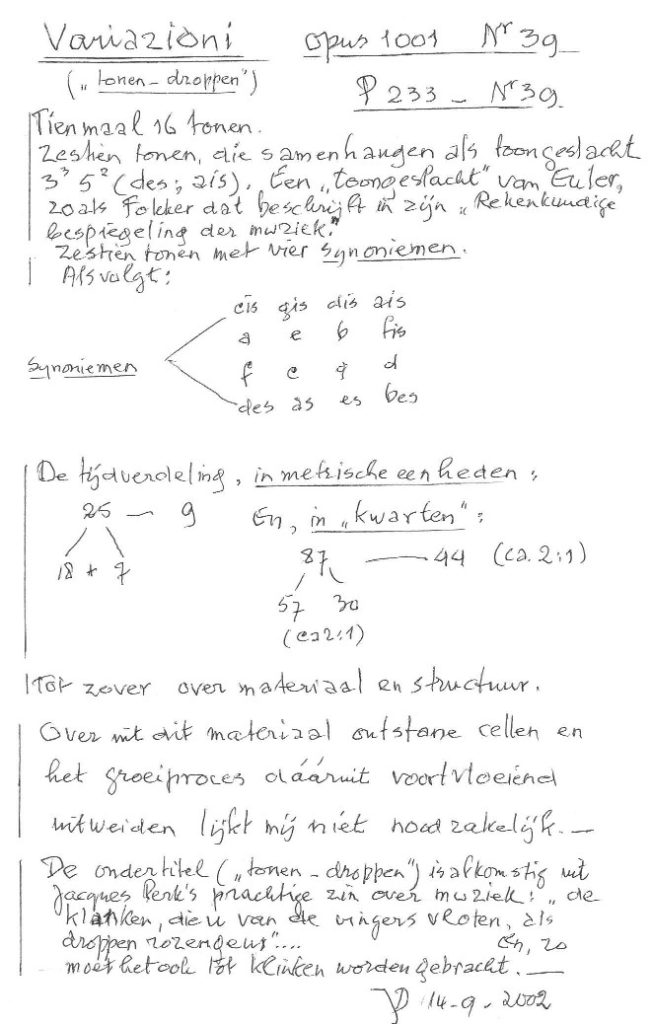 Variazioni opus 1001 Nr 39
("tonen-droppen") P 233 - Nr 39
Tien maal 16 tonen.
Zestien tonen, die samenhangen als toongeslacht
3³ 5² (des; ais). Een "toongeslacht" van Euler,
zoals Fokker dat beschrijft in zijn "Rekenkundige
bespiegeling der muziek."
Zestien tonen met vier synoniemen.
Als volgt:
cis gis dis ais
a e b fis
synoniemen
f c g d
des as es bes
De tijdverdeling, in metrische eenheden:
25 — 9 En, in "kwarten":
18 + 7 87 — 44 (ca. 2:1)
57 30
(ca 2:1)
Tot zover over materiaal en structuur.
Over uit dit materiaal ontstane cellen en
het groeiproces dááruit voortvloeiend
uitweiden lijkt mij niet noodzakelijk. —
De ondertitel ("tonen-droppen") is afkomstig uit
Jacques Perk's prachtige zin over muziek: "de
klanken, die u van de vingers vloten, als
droppen rozengeur".... En, zo
moet het ook tot klinken worden gebracht. —
14-9-2002